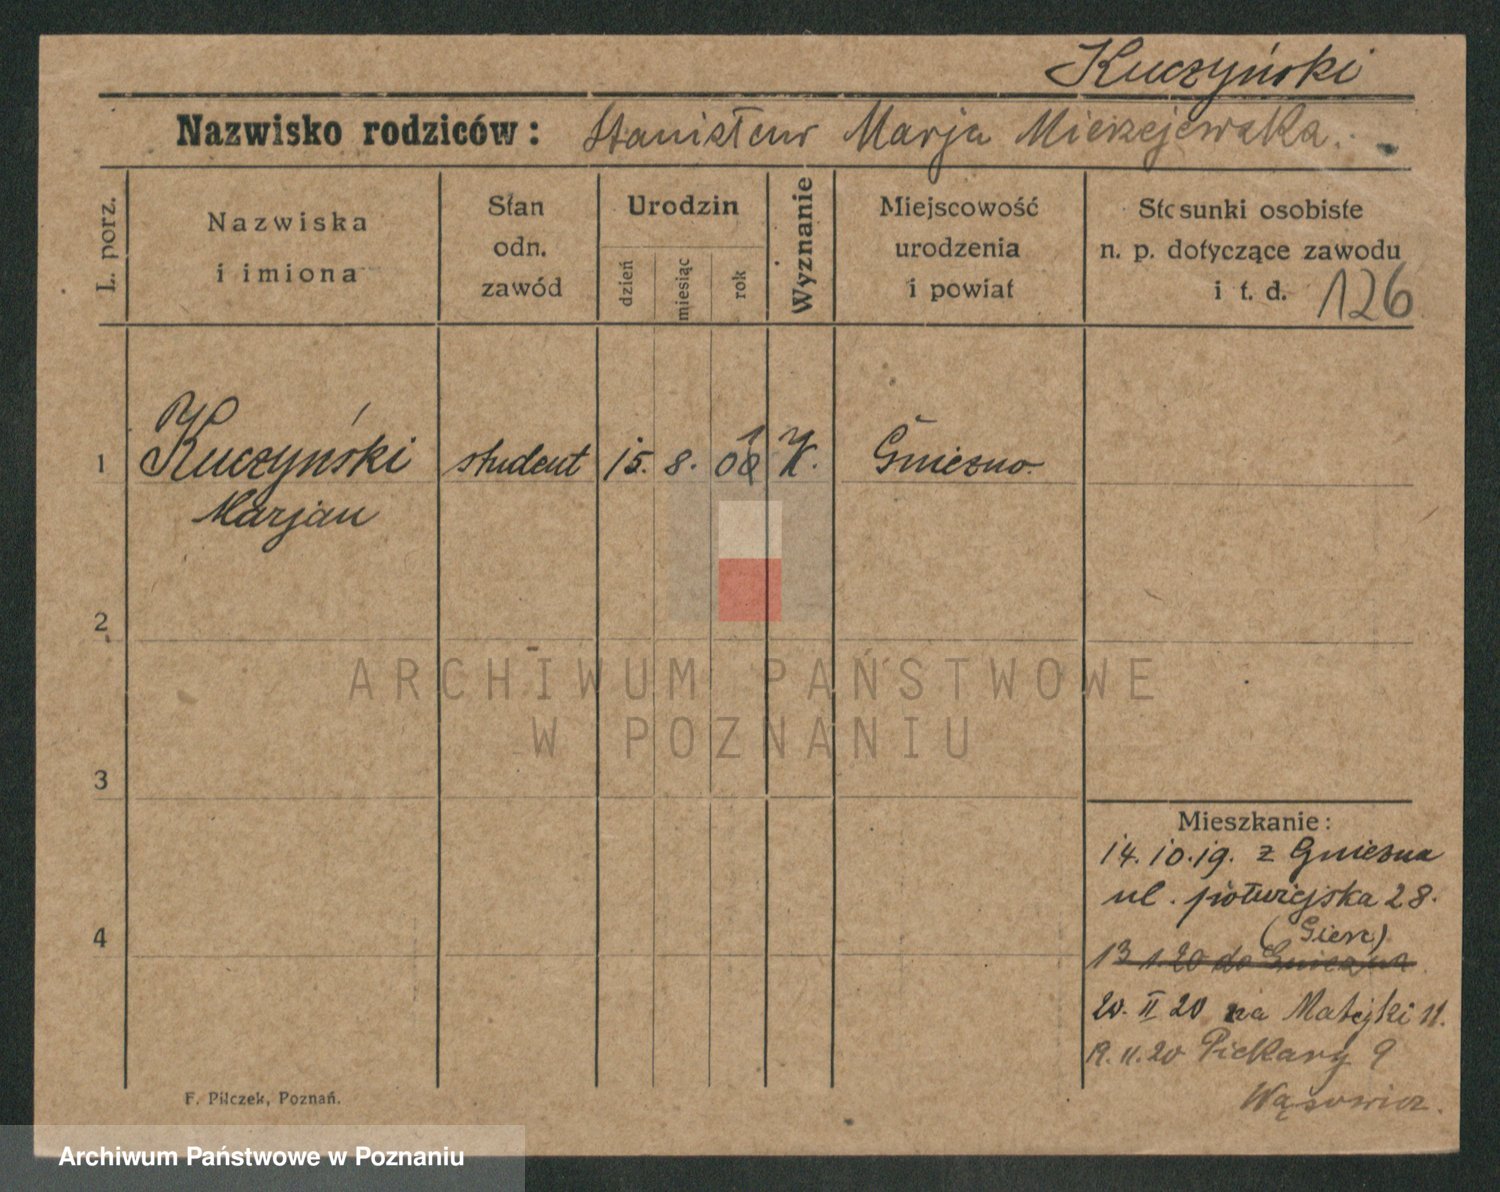 Kuczyński
Nazwisko rodziców: Stanisław Marja Mierzejewska.
L. porz.
Nazwiska
i imiona
Stan
odn.
zawód
Urodzin
dzień
miesiąc
rok
Wyznanie
Miejscowość
urodzenia
i powiat
Stosunki osobiste
n. p. dotyczące zawodu
i t. d. 126
1 Kuczyński student 15. 8. K. Gniezno.
Marjan
2
3
4
Mieszkanie:
14.10.19. z Gniezna
ul. półwiejska 28.
13 1.20 do Gniezna
20. II 20 na Matejki 11.
19.11.20 Piekary 9
Wąsowicz.
F. Pilczek, Poznań.
ARCHIWUM PAŃSTWOWE
W POZNANIU
Archiwum Państwowe w Poznaniu